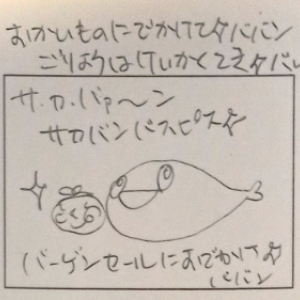 おかいものにでかけてタバパン
ごりようはけいかくてきタバパン
サ.カ.バァ〜ン
サカバンバスピス☆
さくら
バーゲンセールにおでかけ☆
パパン